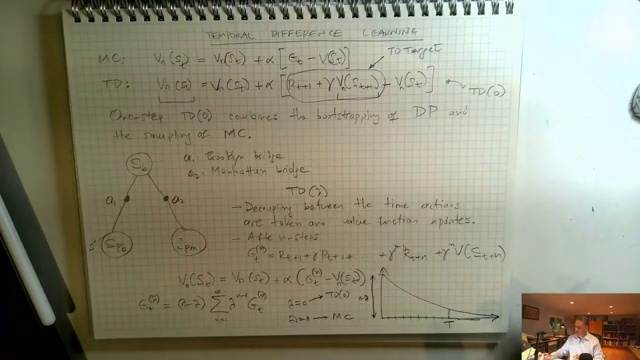 TEMPORAL DIFFERENCE LEARNING
MC: Vπ(St) = Vπ(St) + α [Gt − V(St)]
TD Target
TD: Vπ(St) = Vπ(St) + α [Rt+1 + γ Vπ(St+1) − Vπ(St)]
TD(0)
One-step TD(0) combines the bootstrapping of DP and
the sampling of MC.
S0
a1: Brooklyn bridge
a2: Manhattan bridge
a1
a2
TD(λ)
– Decoupling between the time actions
are taken and value function updates.
– After n-steps
Gt(n) = Rt+1 + γ Rt+2 + γ Rt+n + γn V(St+n)
Vπ(St) = Vπ(St) + α (Gt(n) − Vπ(St))
Gt(λ) = (1−λ) Σ n=1 λn−1 Gt(n)
λ=0 → TD(0)
λ=1 → MC
1-λ
T